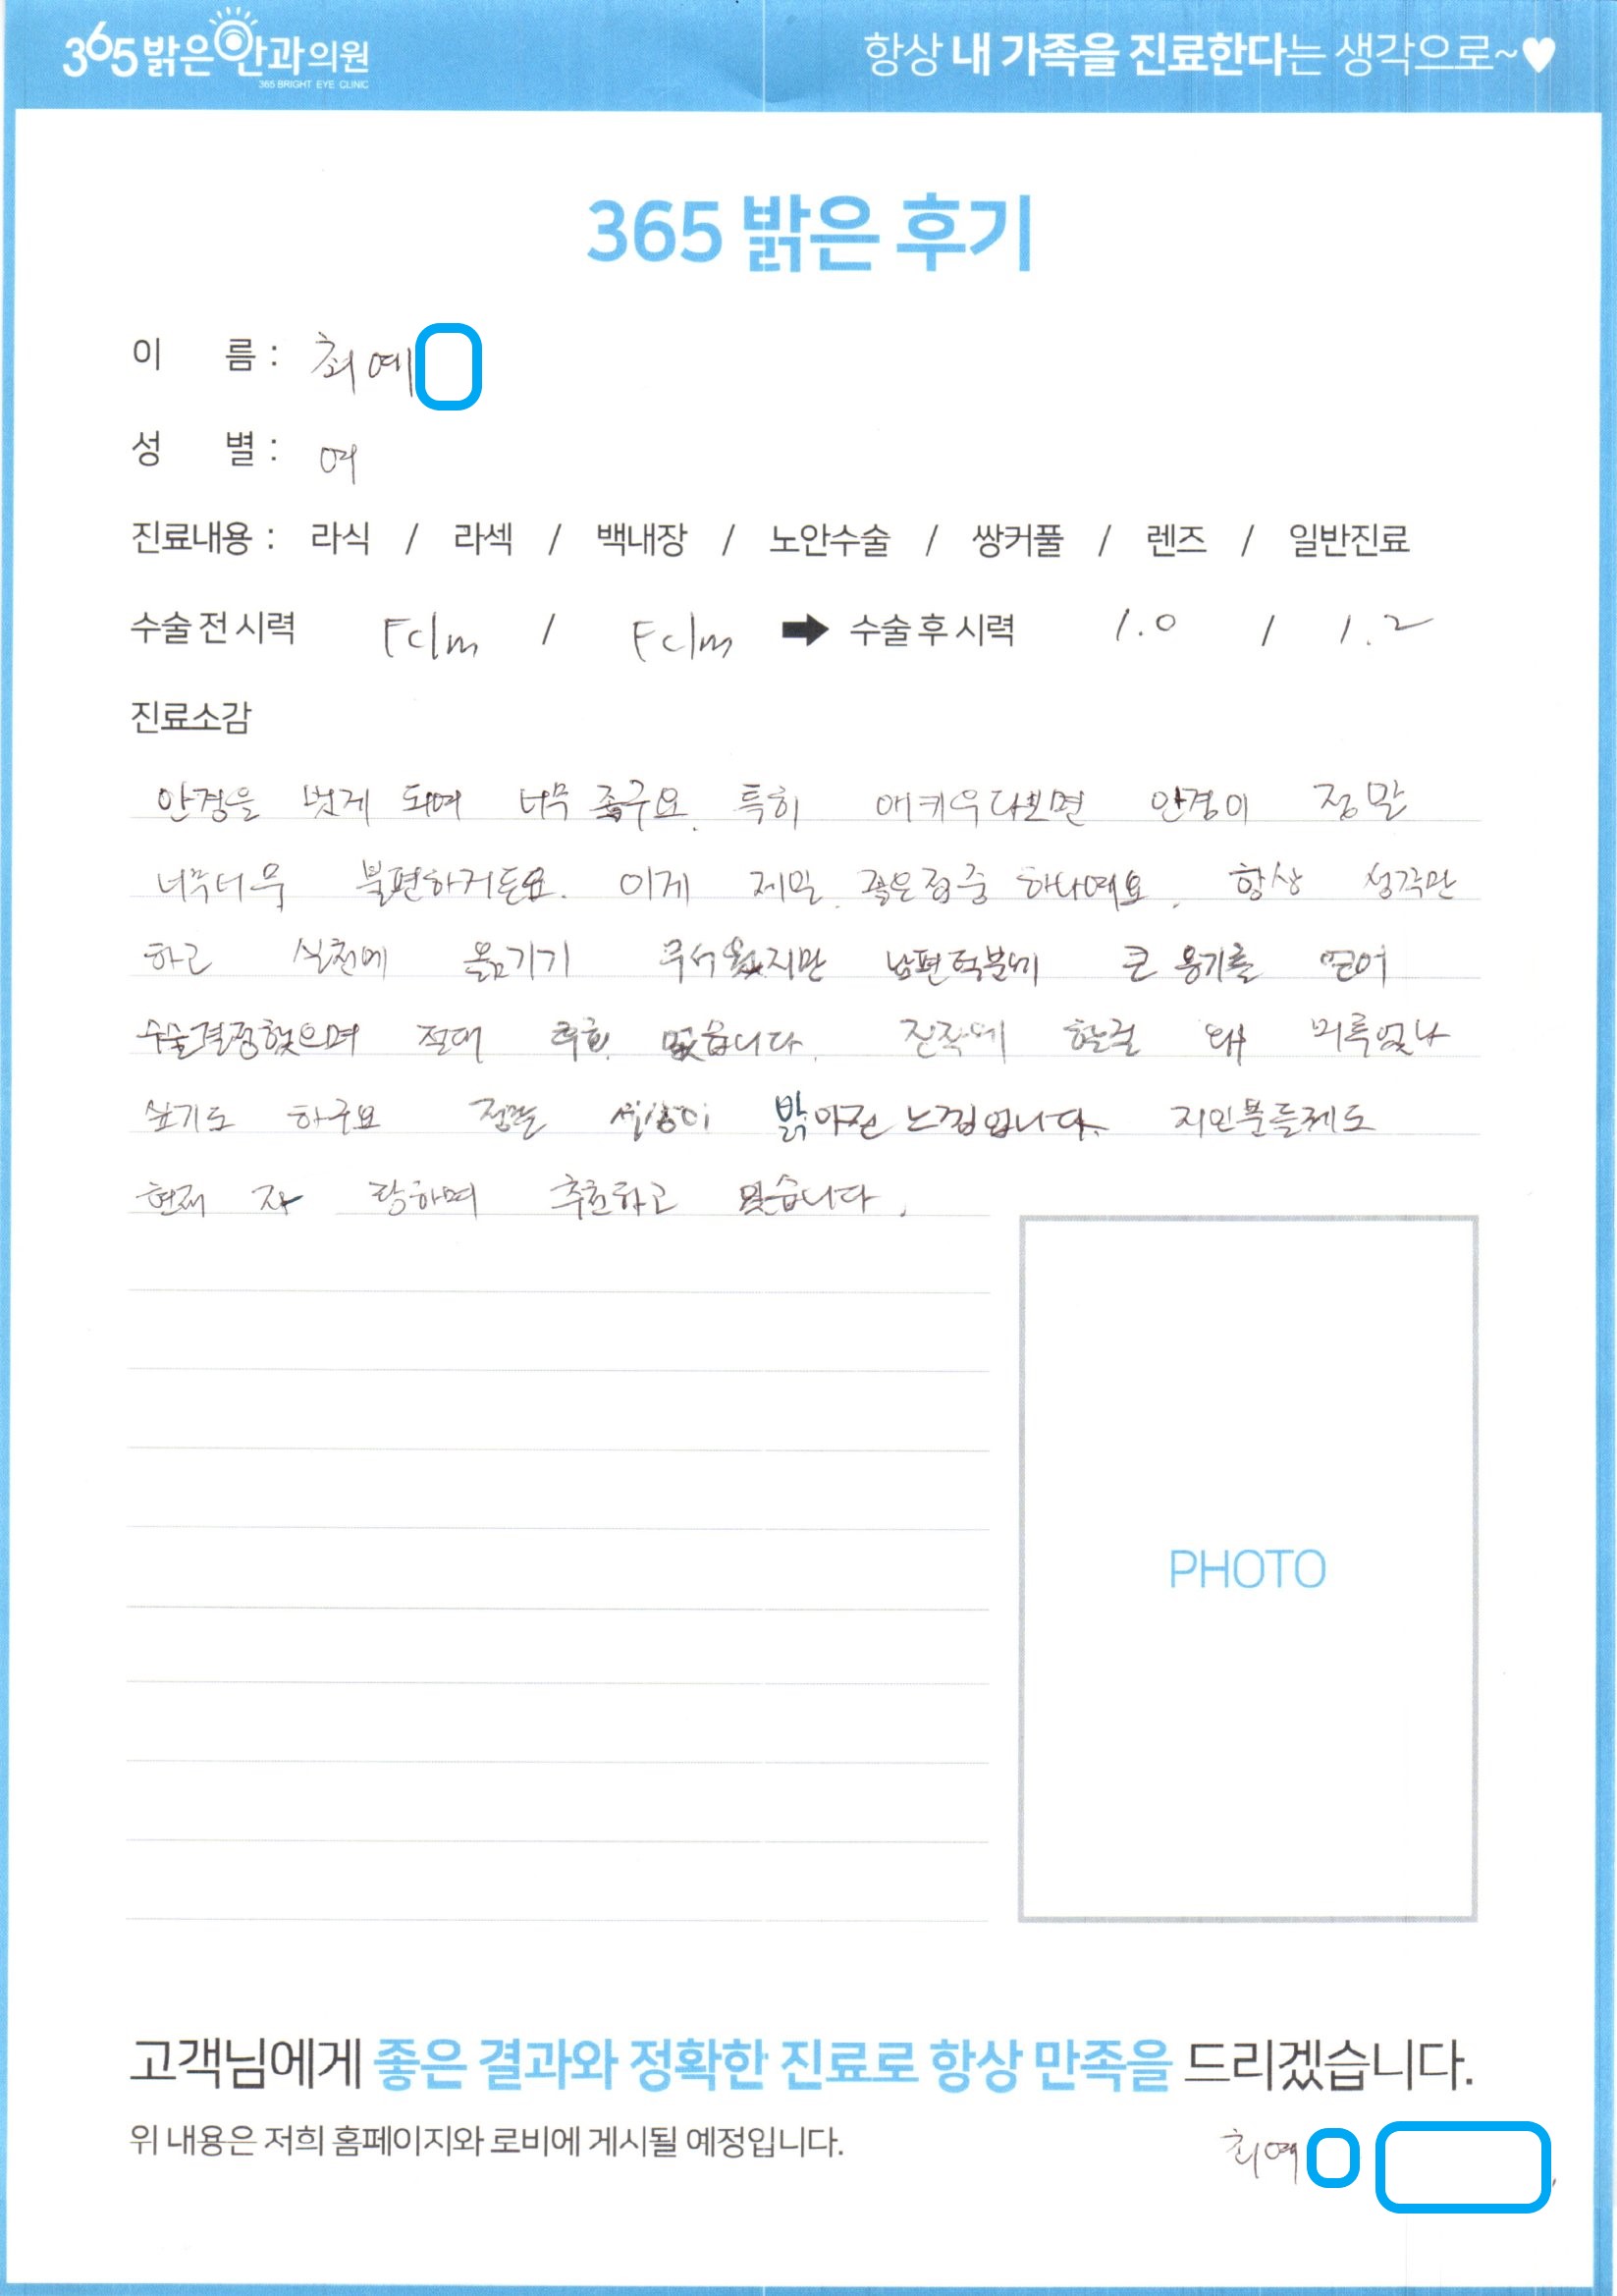 365밝은안과의원
365 BRIGHT EYE CLINIC
항상 내 가족을 진료한다는 생각으로~♥
365 밝은 후기
이 름 : 최예
성 별 : 여
진료내용 : 라식 / 라섹 / 백내장 / 노안수술 / 쌍커풀 / 렌즈 / 일반진료
수술 전 시력 Fc1m / Fc1m ➡ 수술 후 시력 1.0 / 1.2
진료소감
안경을 벗게 되여 너무 좋구요. 특히 애키우다보면 안경이 정말
너무너무 불편하거든요. 이게 제일 좋은점중 하나예요. 항상 생각만
하고 실천에 옮기기 무서웠지만 남편덕분에 큰 용기를 얻어
수술결정했으며 절대 후회 없습니다. 진작에 할걸 왜 미룩었나
싶기도 하구요 정말 세상이 밝아진 느낌입니다. 지인분들께도
현재 자랑하며 추천하고 있습니다.
PHOTO
고객님에게 좋은 결과와 정확한 진료로 항상 만족을 드리겠습니다.
위 내용은 저희 홈페이지와 로비에 게시될 예정입니다.
최예